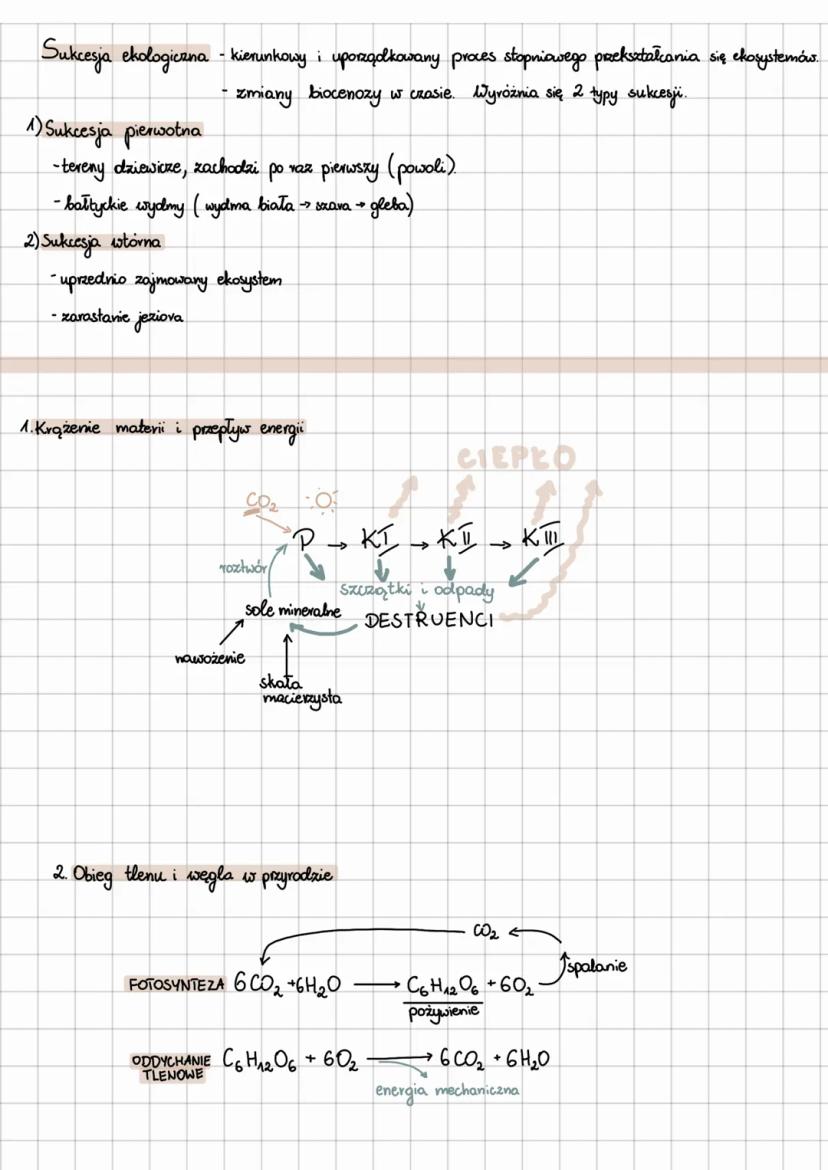 Sukcesja ekologiczna - kierunkowy i uporządkowany proces stopniowego przekształcania się ekosystemów.
- zmiany biocenozy w czasie. Wyróżnia się 2 typy sukcesji.
1) Sukcesja pierwotna
- tereny dziewicze, zachodzi po raz pierwszy (powoli).
- bałtyckie wydmy ( wydma biała → szara → gleba)
2) Sukcesja wtórna
- uprzednio zajmowany ekosystem
- zarastanie jeziora
1. Krążenie materii i przepływ energii
CIEPŁO
CO₂
P → KI → KII → KIII
roztwór
szczątki i odpady
sole mineralne
DESTRUENCI
nawożenie
skała
macierzysta
2. Obieg tlenu i węgla w przyrodzie
CO₂
spalanie
FOTOSYNTEZA 6CO₂ + 6H₂O → C₆H₁₂O₆ + 6O₂
pożywienie
ODDYCHANIE TLENOWE C₆H₁₂O₆ + 6O₂ → 6CO₂ + 6H₂O
energia mechaniczna